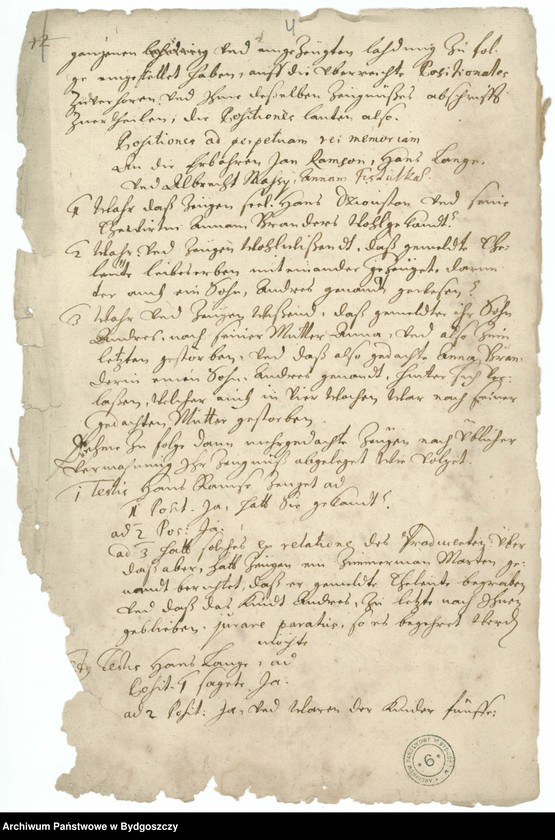 4
12
gangenen und angezeugten ladung zu fol-
ge eingestellet haben, auff die uberreichte Positionales
zuverhören, und Ihme desselben Zeugnüßes abschrifft
zuertheilen; die Positiones lauten also.
Positiones ad perpetuam rei memoriam
An die Erbahren Jan Ramson, Hans Lange,
und Albrecht, Annam
1 Wahr daß Zeugen seel. Hans und seine
Ehewirtin Annam Branders Wohlgekandt?
2 Wahr und Zeugen Wohlwißendt, daß gemeldte Ehe-
leute leibeserben mit einander gezeuget, darun
ter auch ein Sohn, Andres genandt gewesen?
3 Wahr und Zeugen wißend, daß gemeldter ihr Sohn
Andres, nach seiner Mutter Anna, und also zum
letzten gestorben, und daß also gedachte Anna Bran-
derin einen Sohn, Andres genandt, hinter sich ver-
laßen, Welcher auch in vier Wochen War nach seiner
gedachten Mutter gestorben.
Deme zu folge dann mehrgedachte Zeugen nach üblicher
Vermahnung Ihr Zeugnüß abgeleget wie volget.
1 Testis Hans Ramse zeuget ad
1 Posit. Ja, hatt Sie gekandt.
ad 2 Pos: Ja:
ad 3 hatt solches ex relatione des Producenten, uber
daß aber, hatt Zeugen ein Zimmerman Marten ge-
nandt berichtet, daß er gemeldte Eheleute begraben
und daß das Kindt Andres, zu letzt nach Ihnen
geblieben, jurare paratus, so es begehret werdn
möchte
Testis Hans Lange, ad
Posit. 1 sagete Ja.
ad 2 Posit: Ja, und waren der Kinder fünffe:
ARCHIWUM PAŃSTWOWE W BYDGOSZCZY
* 6 *
Archiwum Państwowe w Bydgoszczy